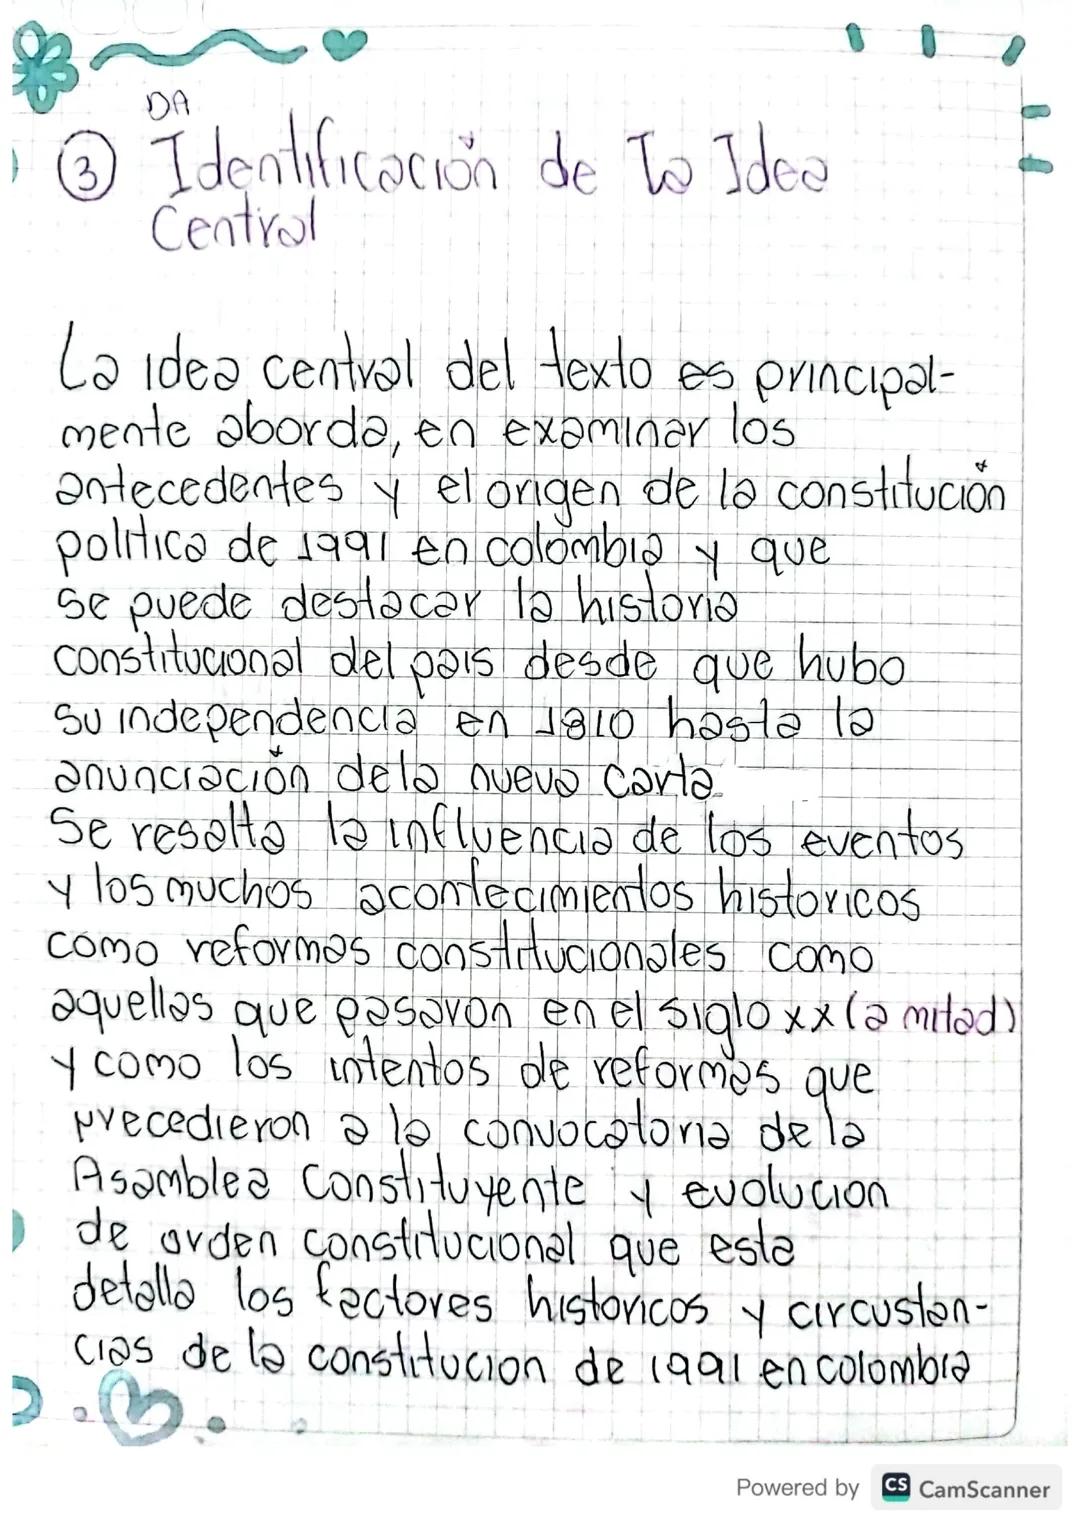 DA
③ Identificación de la Idea
Central
La idea central del texto es principal-
mente aborda, en examinar los
antecedentes y el origen de la constitución
politica de 1991 en colombia y que
se puede destacar la historia
constitucional del pais desde que hubo
su independencia en 1810 hasta la
anunciación de la nueva carta
Se resalta la influencia de los eventos
y los muchos acontecimientos historicos
como reformas constitucionales como
aquellas que pasaron en el siglo xx (a mitad)
y como los intentos de reformas que
precedieron a la convocatoria de la
Asamblea Constituyente y evolucion
de orden constitucional que esta
detalla los factores historicos y circustan-
cias de la constitucion de 1991 en colombia
Powered by CS CamScanner